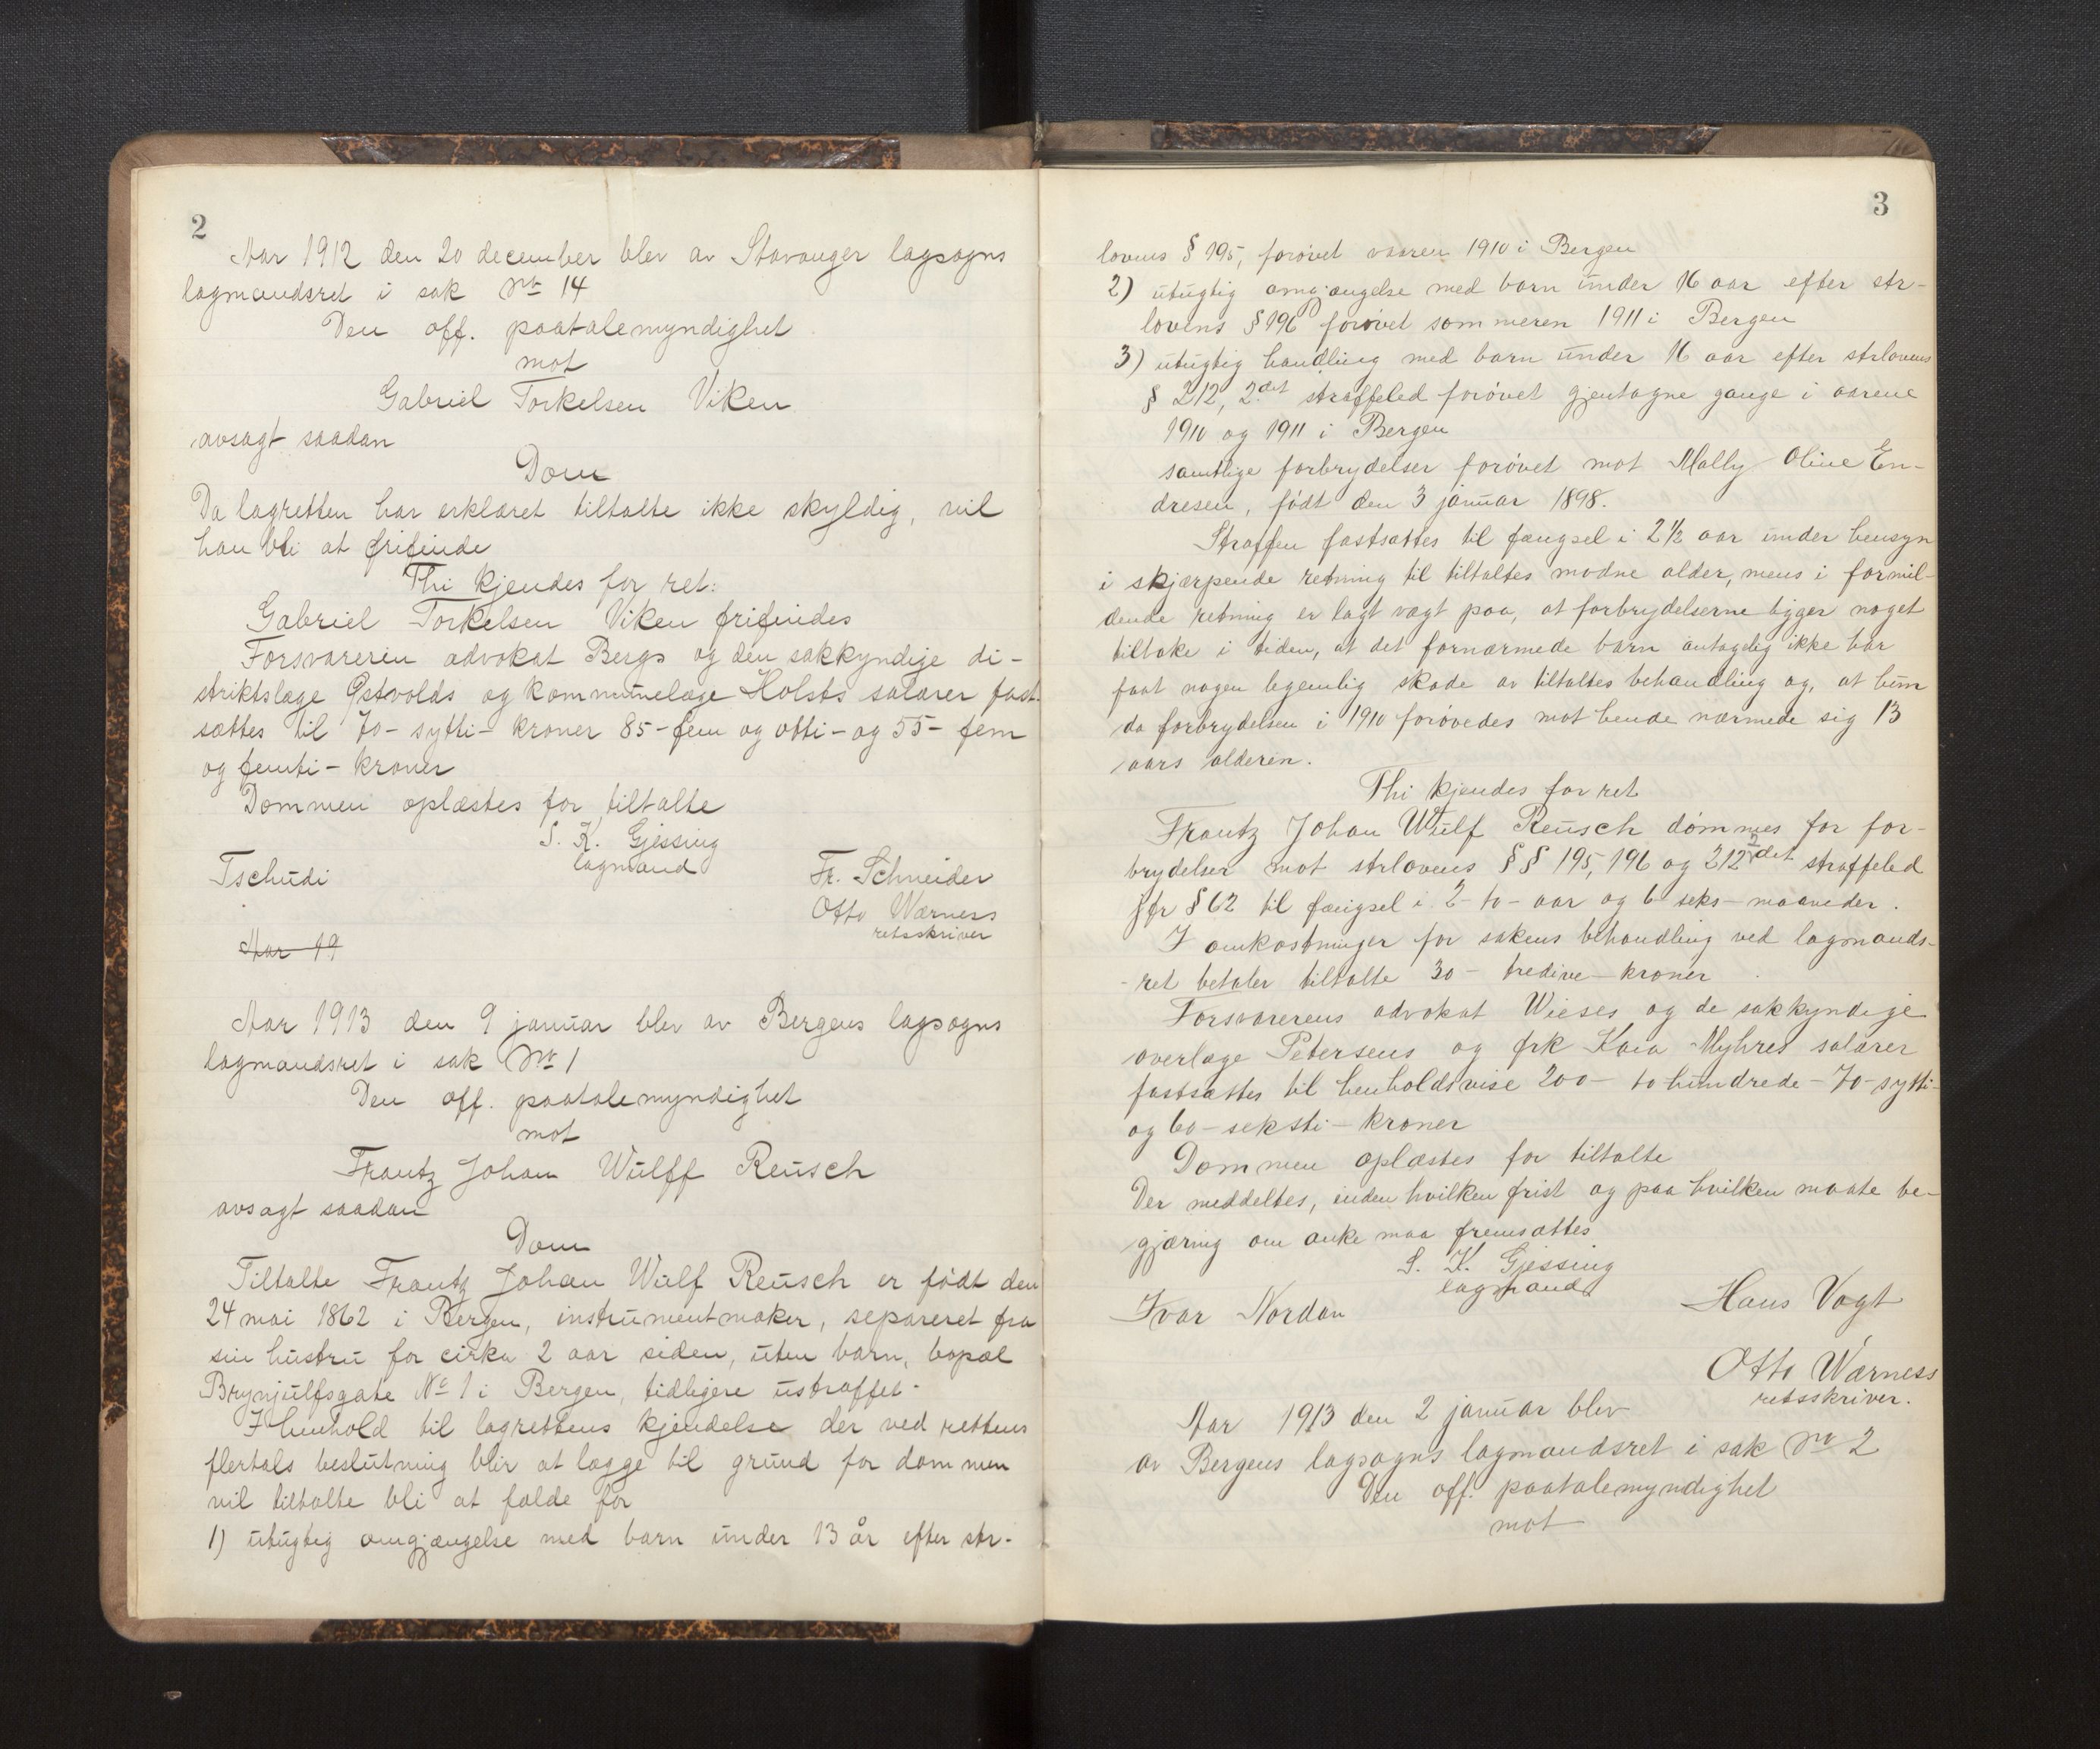 2
Aar 1912 den 20 december blev av Stavanger lagsogns
lagmandsret i sak No 14
Den off. paatalemyndighet
mot
Gabriel Torkelsen Viken
avsagt saadan
Dom
Da lagretten har erklæret tiltalte ikke skyldig, vil
han bli at frifinde
Thi kjendes for ret:
Gabriel Torkelsen Viken frifindes
Forsvareren advokat Bergs og den sakkyndige di-
striktslæge Østvolds og kommunelæge Holsts salærer fast-
sættes til 70 - sytti - kroner 85 - fem og otti - og 55 - fem
og femti - kroner
Dommen oplæstes for tiltalte
S. K. Gjessing
lagmand
Tschudi
Fr. Schneider
Otto Wærness
retsskriver
Aar 19
Aar 1913 den 9 januar blev av Bergens lagsogns
lagmandsret i sak No 1
Den off. paatalemyndighet
mot
Frantz Johan Wulff Reusch
avsagt saadan
Dom
Tiltalte Frantz Johan Wulf Reusch er født den
24 mai 1862 i Bergen, instrumentmaker, separeret fra
sin hustru for cirka 2 aar siden, uten barn, bopæl
Brynjulfsgate No 1 i Bergen, tidligere ustraffet.
I henhold til lagrettens kjendelse der ved rettens
flertals beslutning blir at lægge til grund for dommen
vil tiltalte bli at fælde for
1) utugtig omgjængelse med barn under 13 år efter str-
3
lovens § 195, forøvet vaaren 1910 i Bergen
2) utugtig omgjængelse med barn under 16 aar efter str-
lovens § 196 forøvet sommeren 1911 i Bergen
3) utugtig handling med barn under 16 aar efter strlovens
§ 212, 2det straffeled forøvet gjentagne gange i aarene
1910 og 1911 i Bergen
samtlige forbrydelser forøvet mot Mally Oline En-
dresen, født den 3 januar 1898.
Straffen fastsættes til fængsel i 2½ aar under hensyn
i skjærpende retning til tiltaltes modne alder, mens i formil-
dende retning er lagt vægt paa, at forbrydelserne ligger noget
tilbake i tiden, at det fornærmede barn antagelig ikke har
faat nogen legemlig skade av tiltaltes behandling og, at hun
da forbrydelsen i 1910 forøvedes mot hende nærmede sig 13
aars alderen.
Thi kjendes for ret
Frantz Johan Wulf Reusch dømmes for for-
brydelser mot strlovens §§ 195, 196 og 212 2det straffeled
jfr § 62 til fængsel i 2 - to - aar og 6 seks - maaneder.
I omkostninger for sakens behandling ved lagmands-
-ret betaler tiltalte 30 - tredive - kroner
Forsvarerens advokat Wieses og de sakkyndige
overlæge Petersens og frk Kaia Myhres salærer
fastsættes til henholdsvise 200 - to hundrede - 70 - sytti -
og 60 - seksti - kroner
Dommen oplæstes for tiltalte
Der meddeltes, inden hvilken frist og paa hvilken maate be-
gjæring om anke maa fremsættes
S. K. Gjessing
lagmand
Ivar Nordan
Hans Vogt
Otto Wærness
retsskriver.
Aar 1913 den 2 januar blev
av Bergens lagsogns lagmandsret i sak No 2
Den off. paatalemyndighet
mot